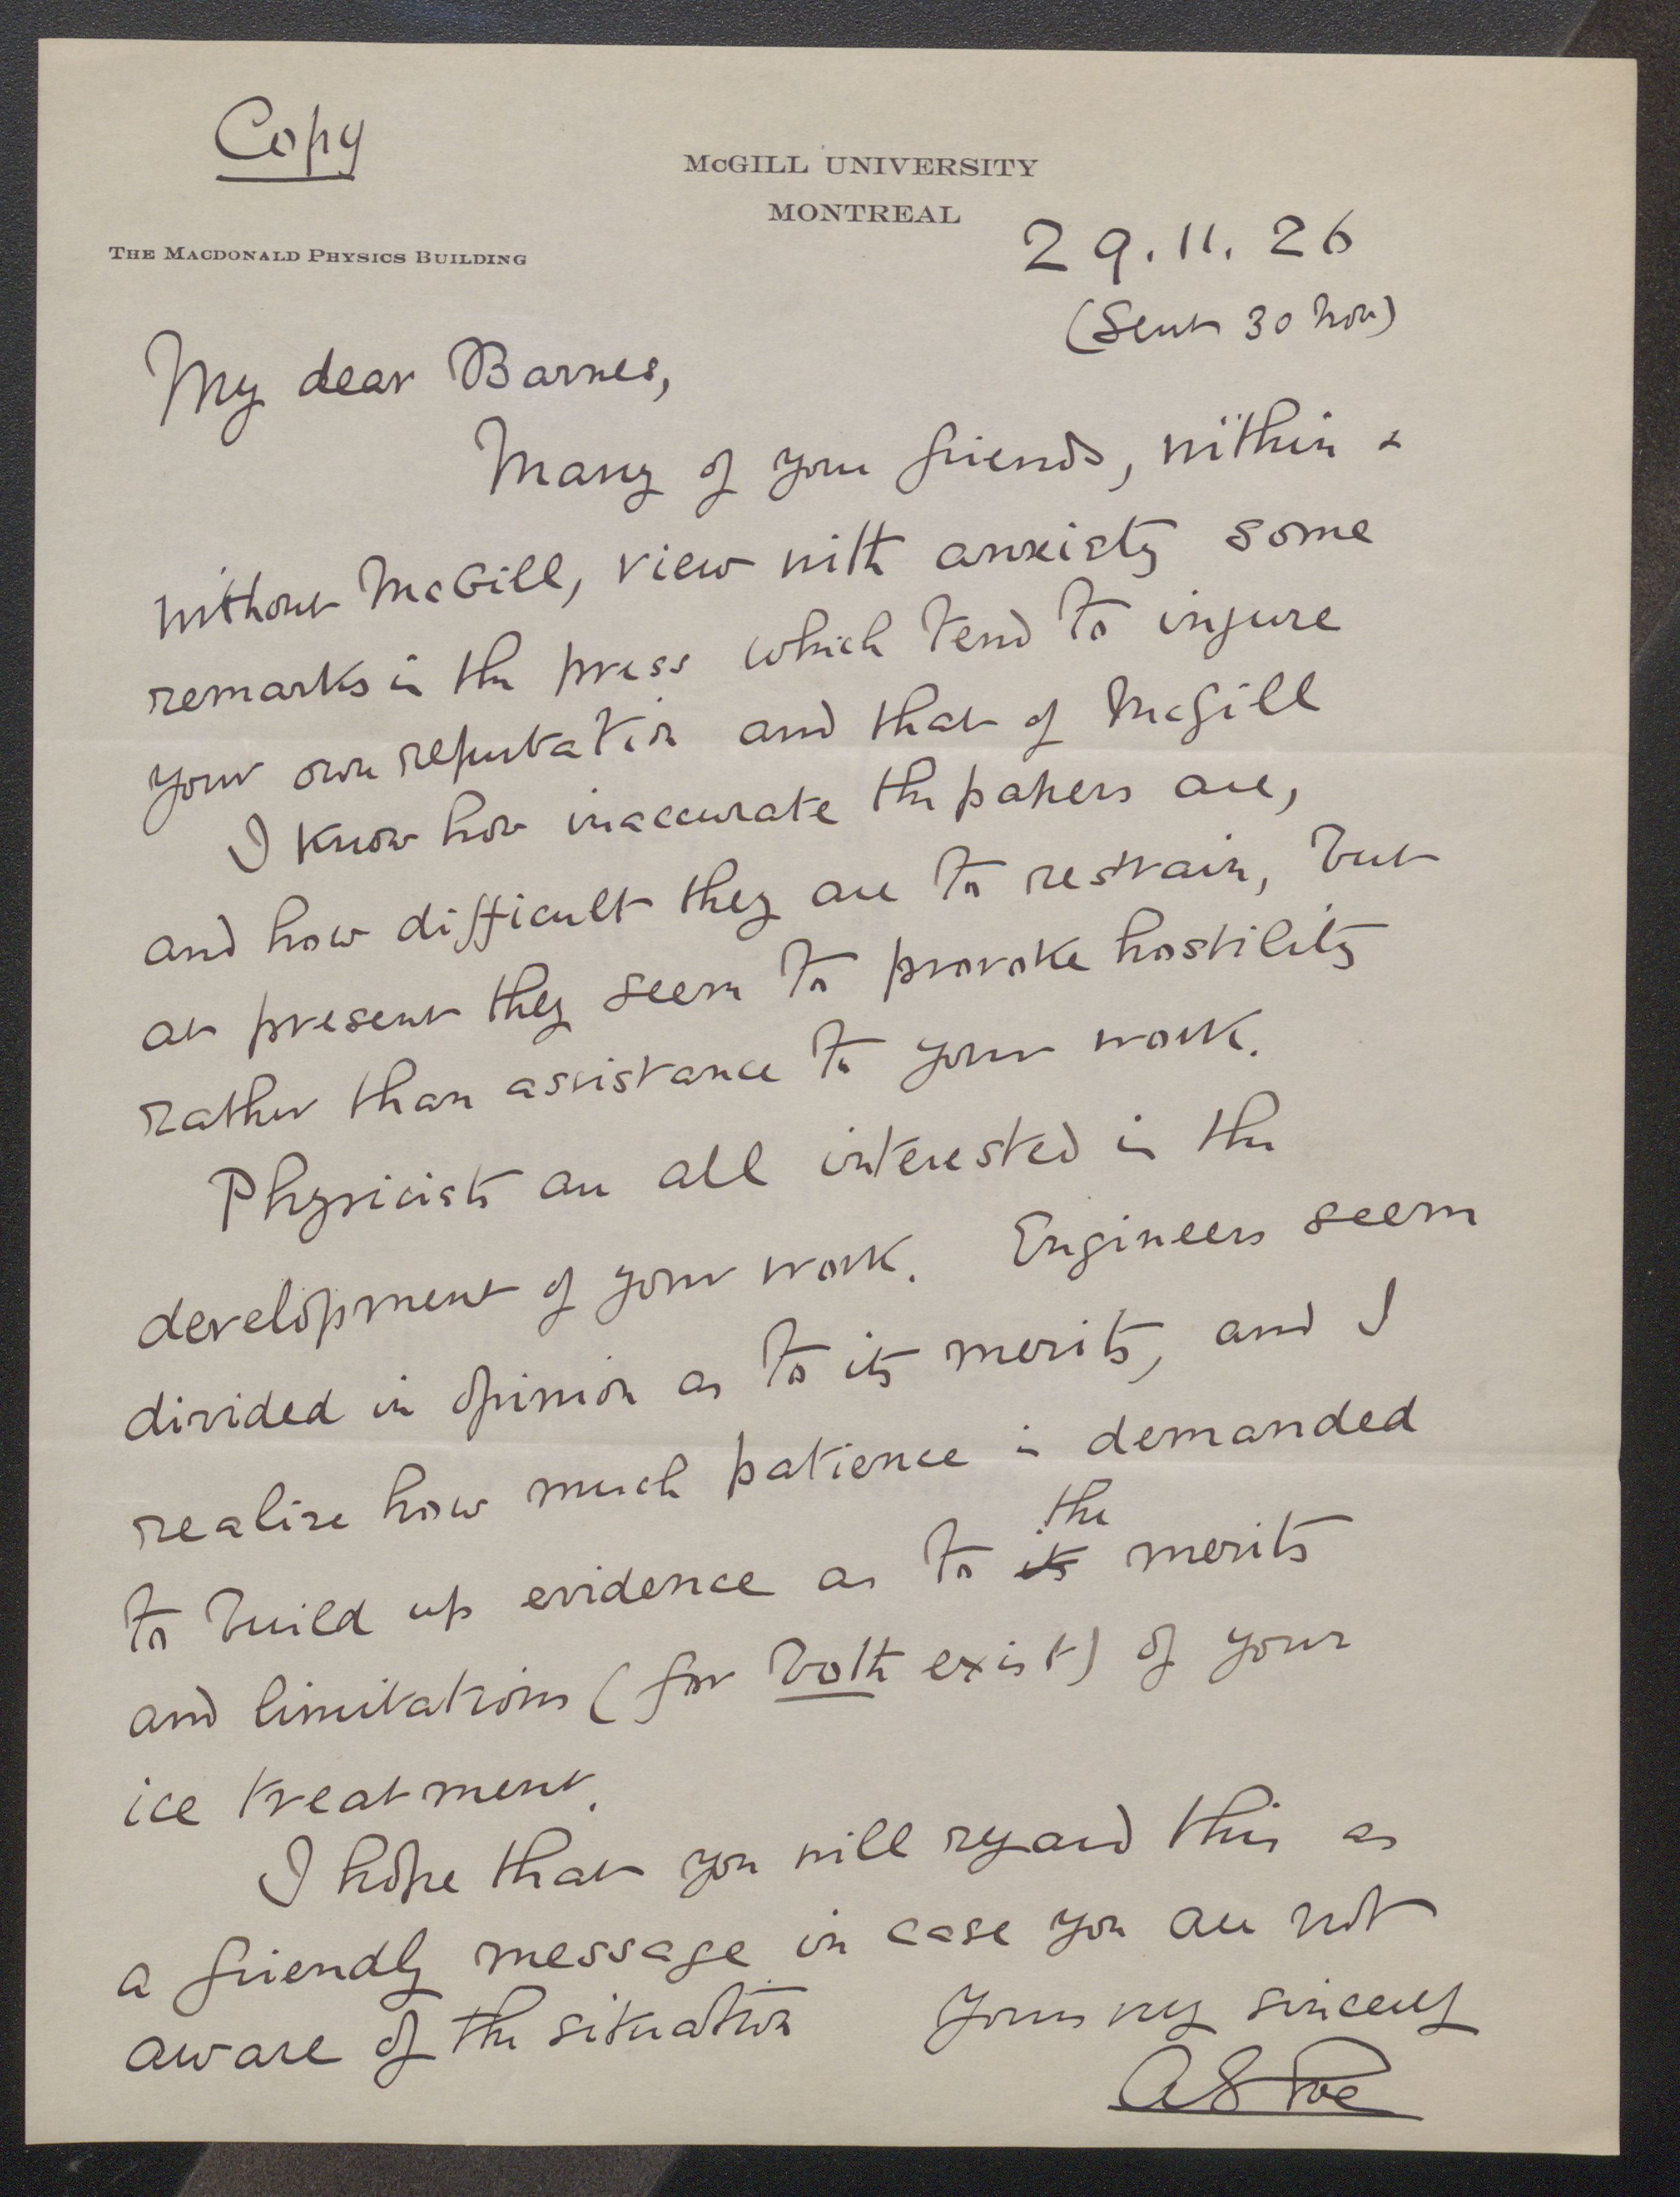 Copy
McGILL UNIVERSITY
MONTREAL
THE MACDONALD PHYSICS BUILDING
29.11.26
(Sent 30 Nov)
My dear Barnes,
Many of your friends, within &
without McGill, view with anxiety some
remarks in the press which tend to injure
your own reputation and that of McGill
I know how inaccurate the papers are,
and how difficult they are to restrain, but
at present they seem to provoke hostility
rather than assistance to your work.
Physicists are all interested in the
development of your work. Engineers seem
divided in opinion as to its merits, and I
realise how much patience is demanded
the
to build up evidence as to its merits
and limitations (for both exist) of your
ice treatment.
I hope that you will regard this as
a friendly message in case you are not
aware of the situation Yours very sincerely
AS Eve